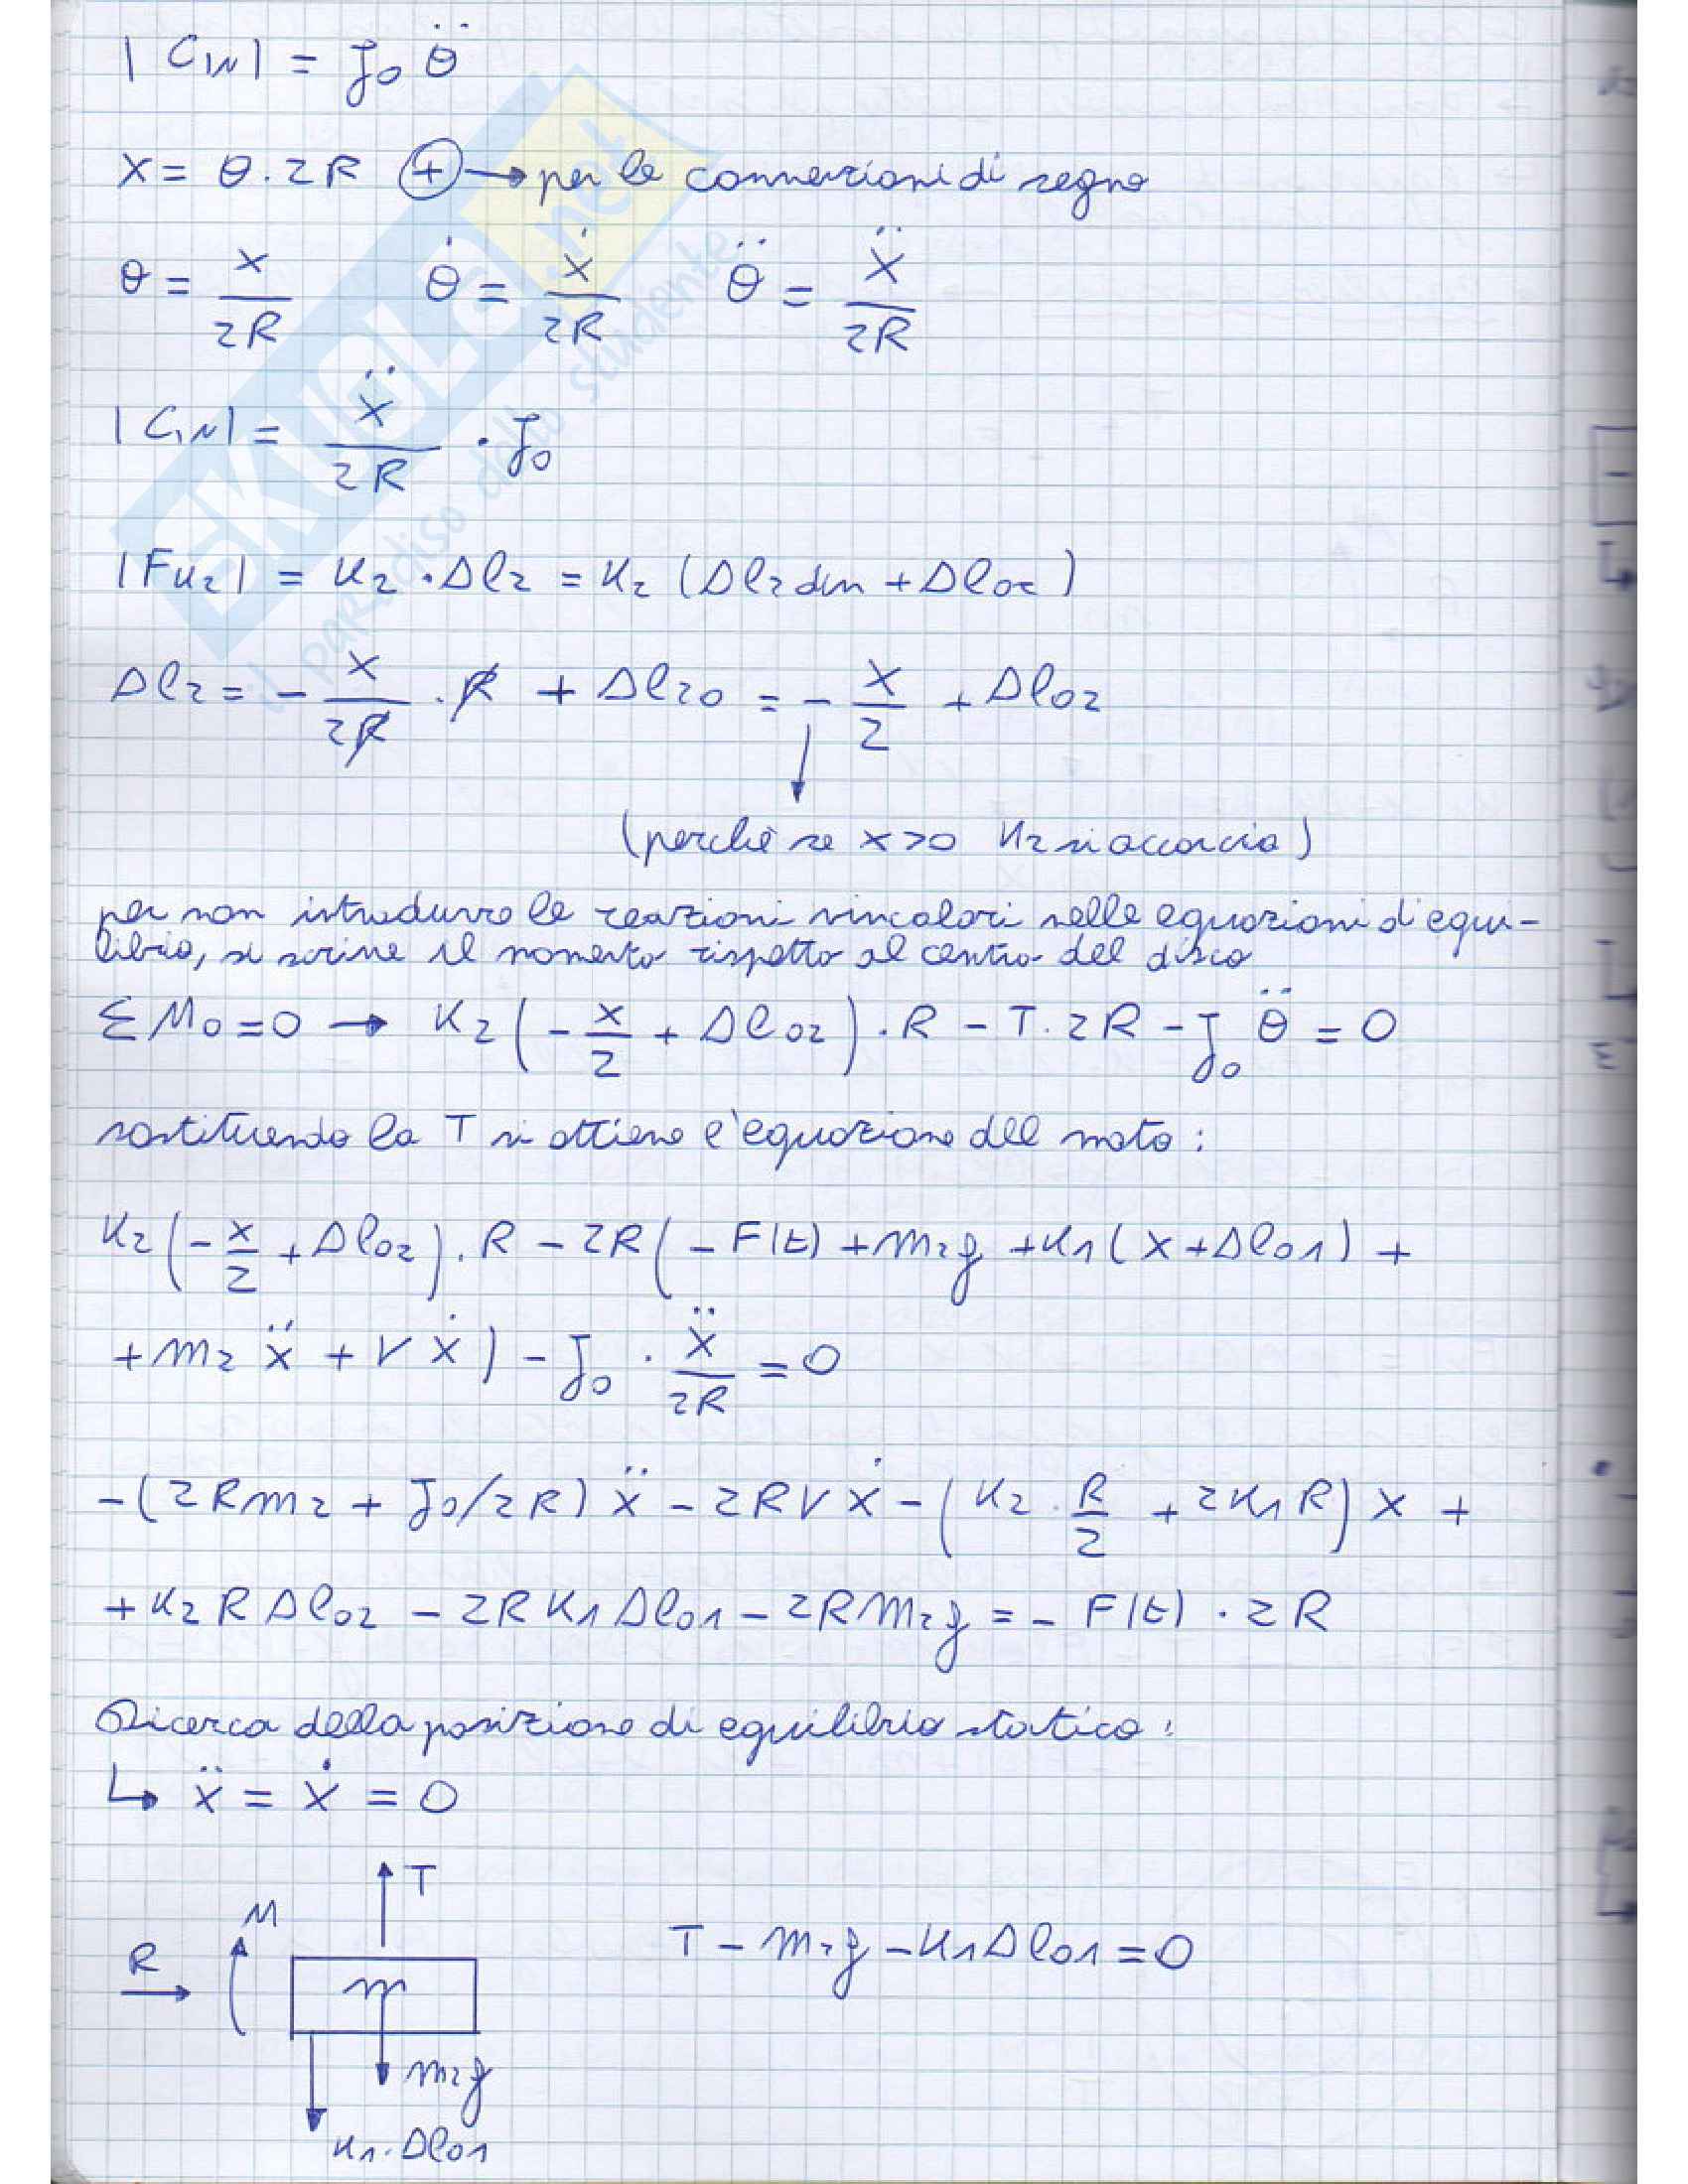 |C_IN| = J₀ θ̈
x = θ · 2R ⊕ → per le convenzioni di segno
θ = x/2R   θ̇ = ẋ/2R   θ̈ = ẍ/2R
|C_IN| = ẍ/2R · J₀
|F_K2| = K₂ · Δl₂ = K₂ (Δl₂ din + Δl₀₂)
Δl₂ = - x/2R · R + Δl₂₀ = - x/2 + Δl₀₂
(perchè se x>0 K₂ si accorcia)
per non introdurre le reazioni vincolari nelle equazioni d'equi-
librio, si scrive il momento rispetto al centro del disco
ΣM₀=0 → K₂(- x/2 + Δl₀₂) · R - T · 2R - J₀ θ̈ = 0
sostituendo la T si ottiene l'equazione del moto:
K₂(- x/2 + Δl₀₂) · R - 2R(- F(t) + m₂g + K₁(x + Δl₀₁) +
+ m₂ ẍ + r ẋ) - J₀ · ẍ/2R = 0
-(2Rm₂ + J₀/2R) ẍ - 2Rr ẋ - (K₂ · R/2 + 2K₁R) x +
+ K₂RΔl₀₂ - 2RK₁Δl₀₁ - 2Rm₂g = - F(t) · 2R
Ricerca della posizione di equilibrio statico:
↳ ẍ = ẋ = 0
T
M
R
m
T - m₂g - K₁Δl₀₁ = 0
m₂g
K₁·Δl₀₁
SKUOLA.net
il paradiso dello studente